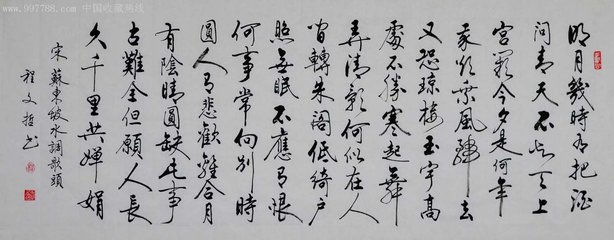 www.997788.com 中国收藏热线
明月幾時有把酒
問青天不知天上
宮闕今夕是何年
我欲乘風歸去
又恐瓊樓玉宇高
處不勝寒起舞
弄清影何似在人
間轉朱閣低綺戶
照無眠不應有恨
何事常向別時
圓人有悲歡離合月
有陰晴圓缺此事
古難全但願人長
久千里共嬋娟
宋蘇東坡水調歌頭
程文哲书